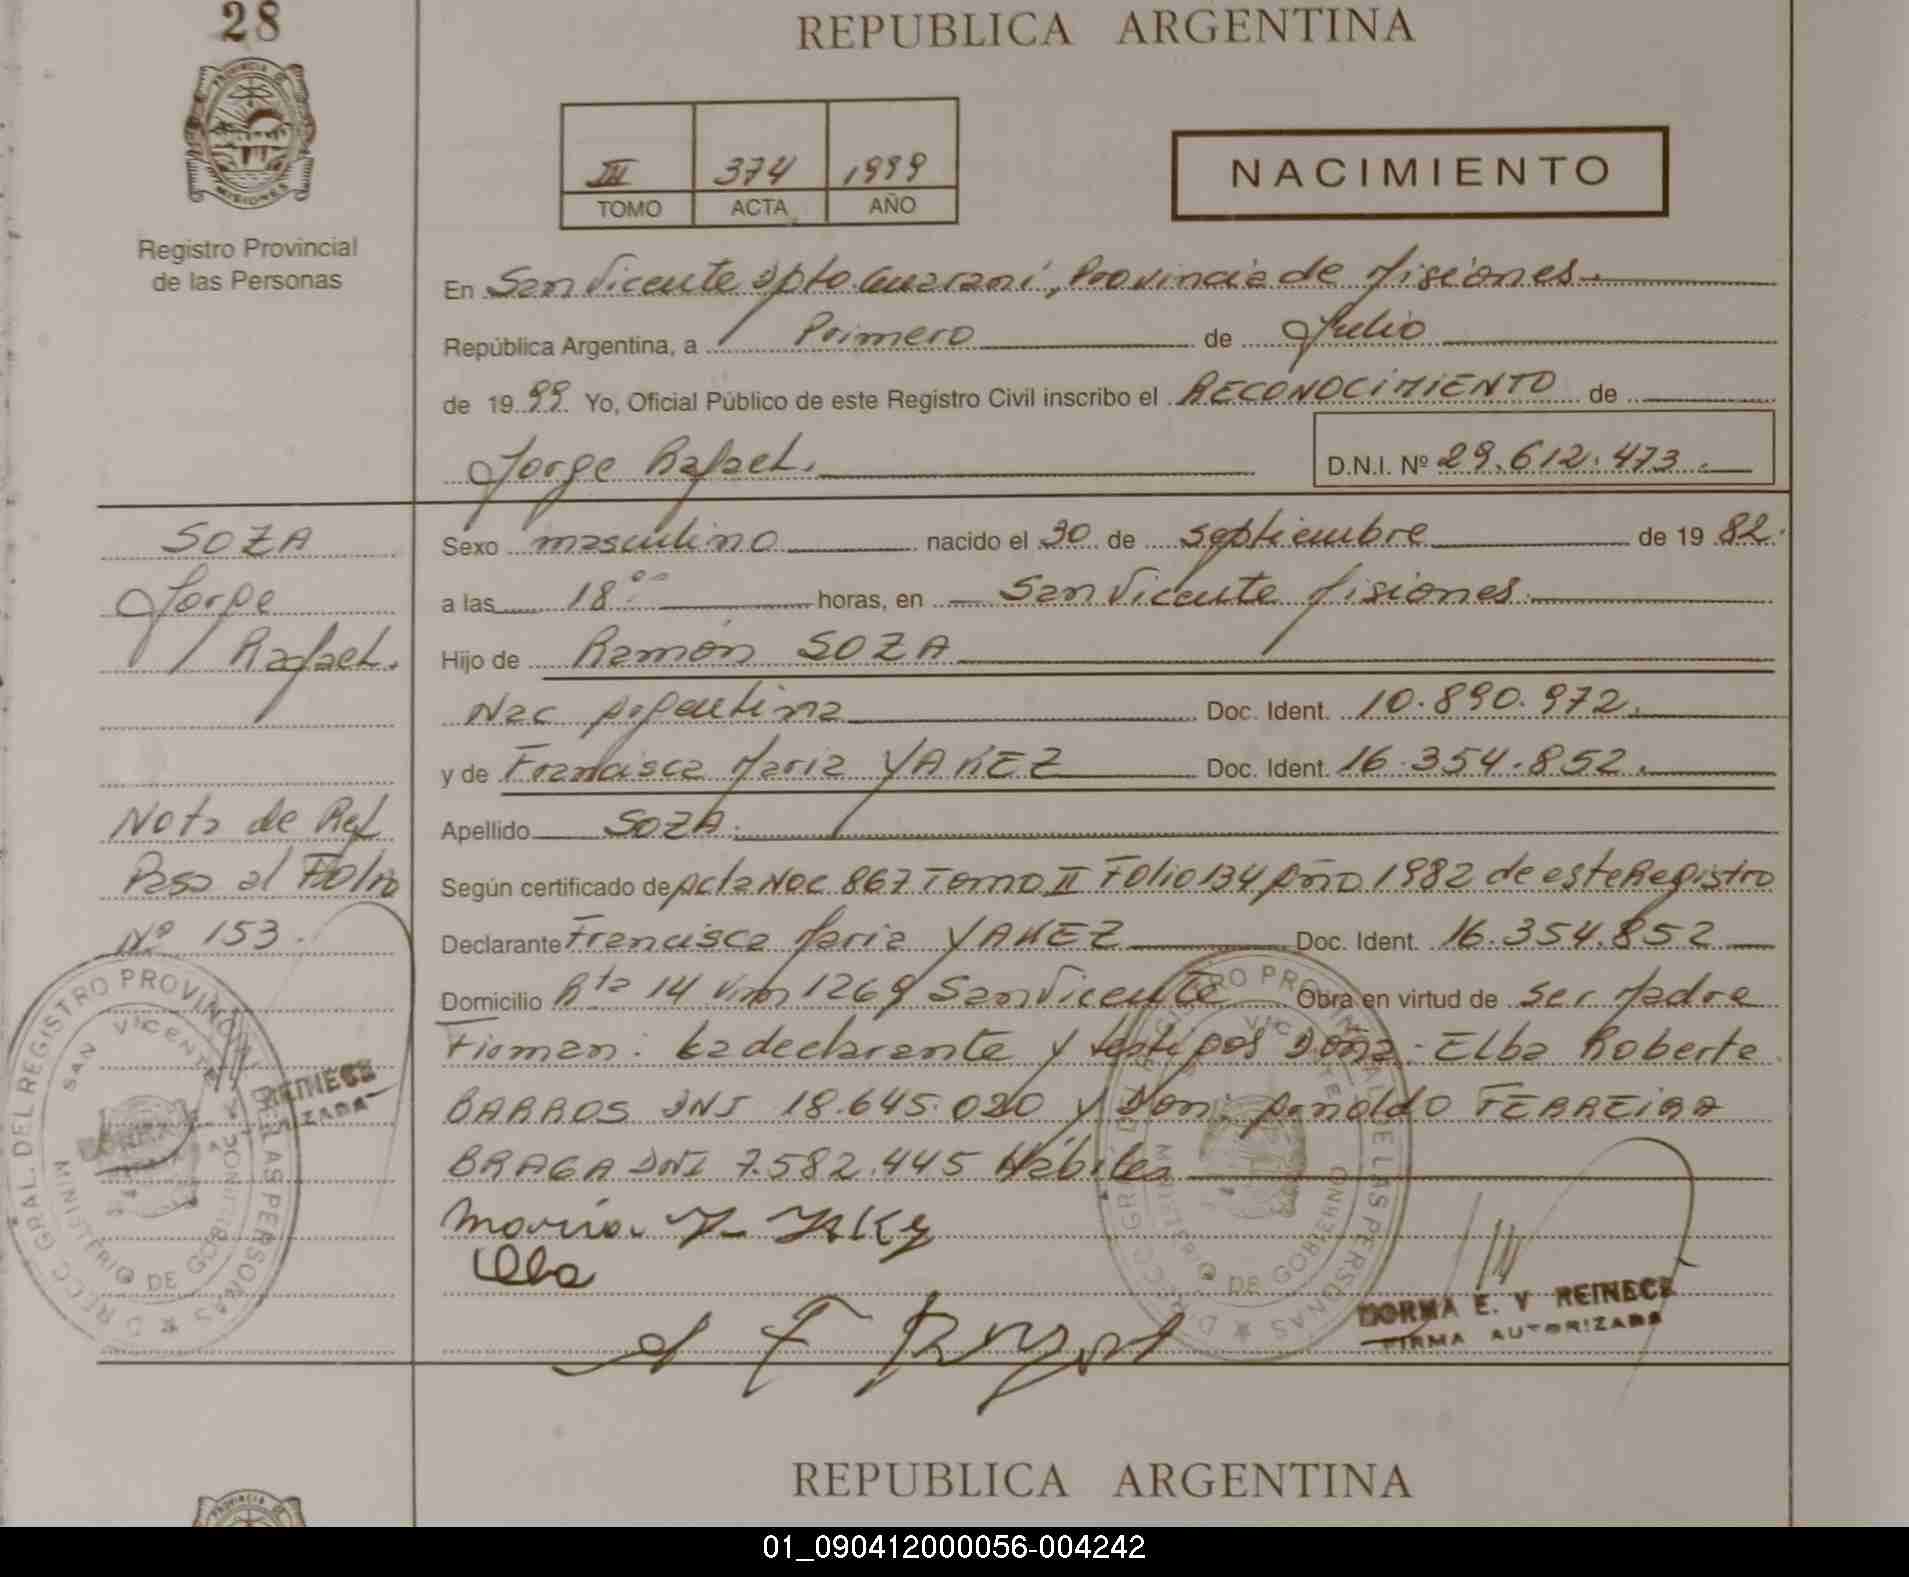 28
REPUBLICA ARGENTINA
PROVINCIA DE
MISIONES
Registro Provincial
de las Personas
III 374 1999
TOMO ACTA AÑO
NACIMIENTO
En San Vicente Dpto Guaraní, Provincia de Misiones
República Argentina, a Primero de Julio
de 1999 Yo, Oficial Público de este Registro Civil inscribo el RECONOCIMIENTO de
Jorge Rafael. D.N.I. Nº 29.612.473.
SOZA
Jorge
Rafael.
Nota de Ref
Pasa al Folio
Nº 153.
Sexo masculino nacido el 30 de septiembre de 1982.
a las 18°° horas, en San Vicente Misiones.
Hijo de Ramón SOZA
Nac Argentina Doc. Ident. 10.890.972.
y de Francisca Maria YAKEZ Doc. Ident. 16.354.852.
Apellido SOZA.
Según certificado de Acta Nac 867 Tomo II Folio 134 Año 1982 de este Registro
Declarante Francisca Maria YAKEZ Doc. Ident. 16.354.852
Domicilio Rta 14 Km 1269 San Vicente Obra en virtud de ser Madre
Firman: La declarante y testigos Doña: Elba Roberta
BARROS DNI 18.645.020 y Don: Arnoldo FERREIRA
BRAGA DNI 7.582.445 Hábiles
Elba
DIRECC. GRAL. DEL REGISTRO PROVINCIAL DE LAS PERSONAS
SAN VICENTE
MINISTERIO DE GOBIERNO
REINECE
AUTORIZADA
DIRECC. GRAL. DEL REGISTRO PROVINCIAL DE LAS PERSONAS
VICENTE
MINISTERIO DE GOBIERNO
NORMA E. V REINECE
FIRMA AUTORIZADA
REPUBLICA ARGENTINA
PROVINCIA DE
01_090412000056-004242